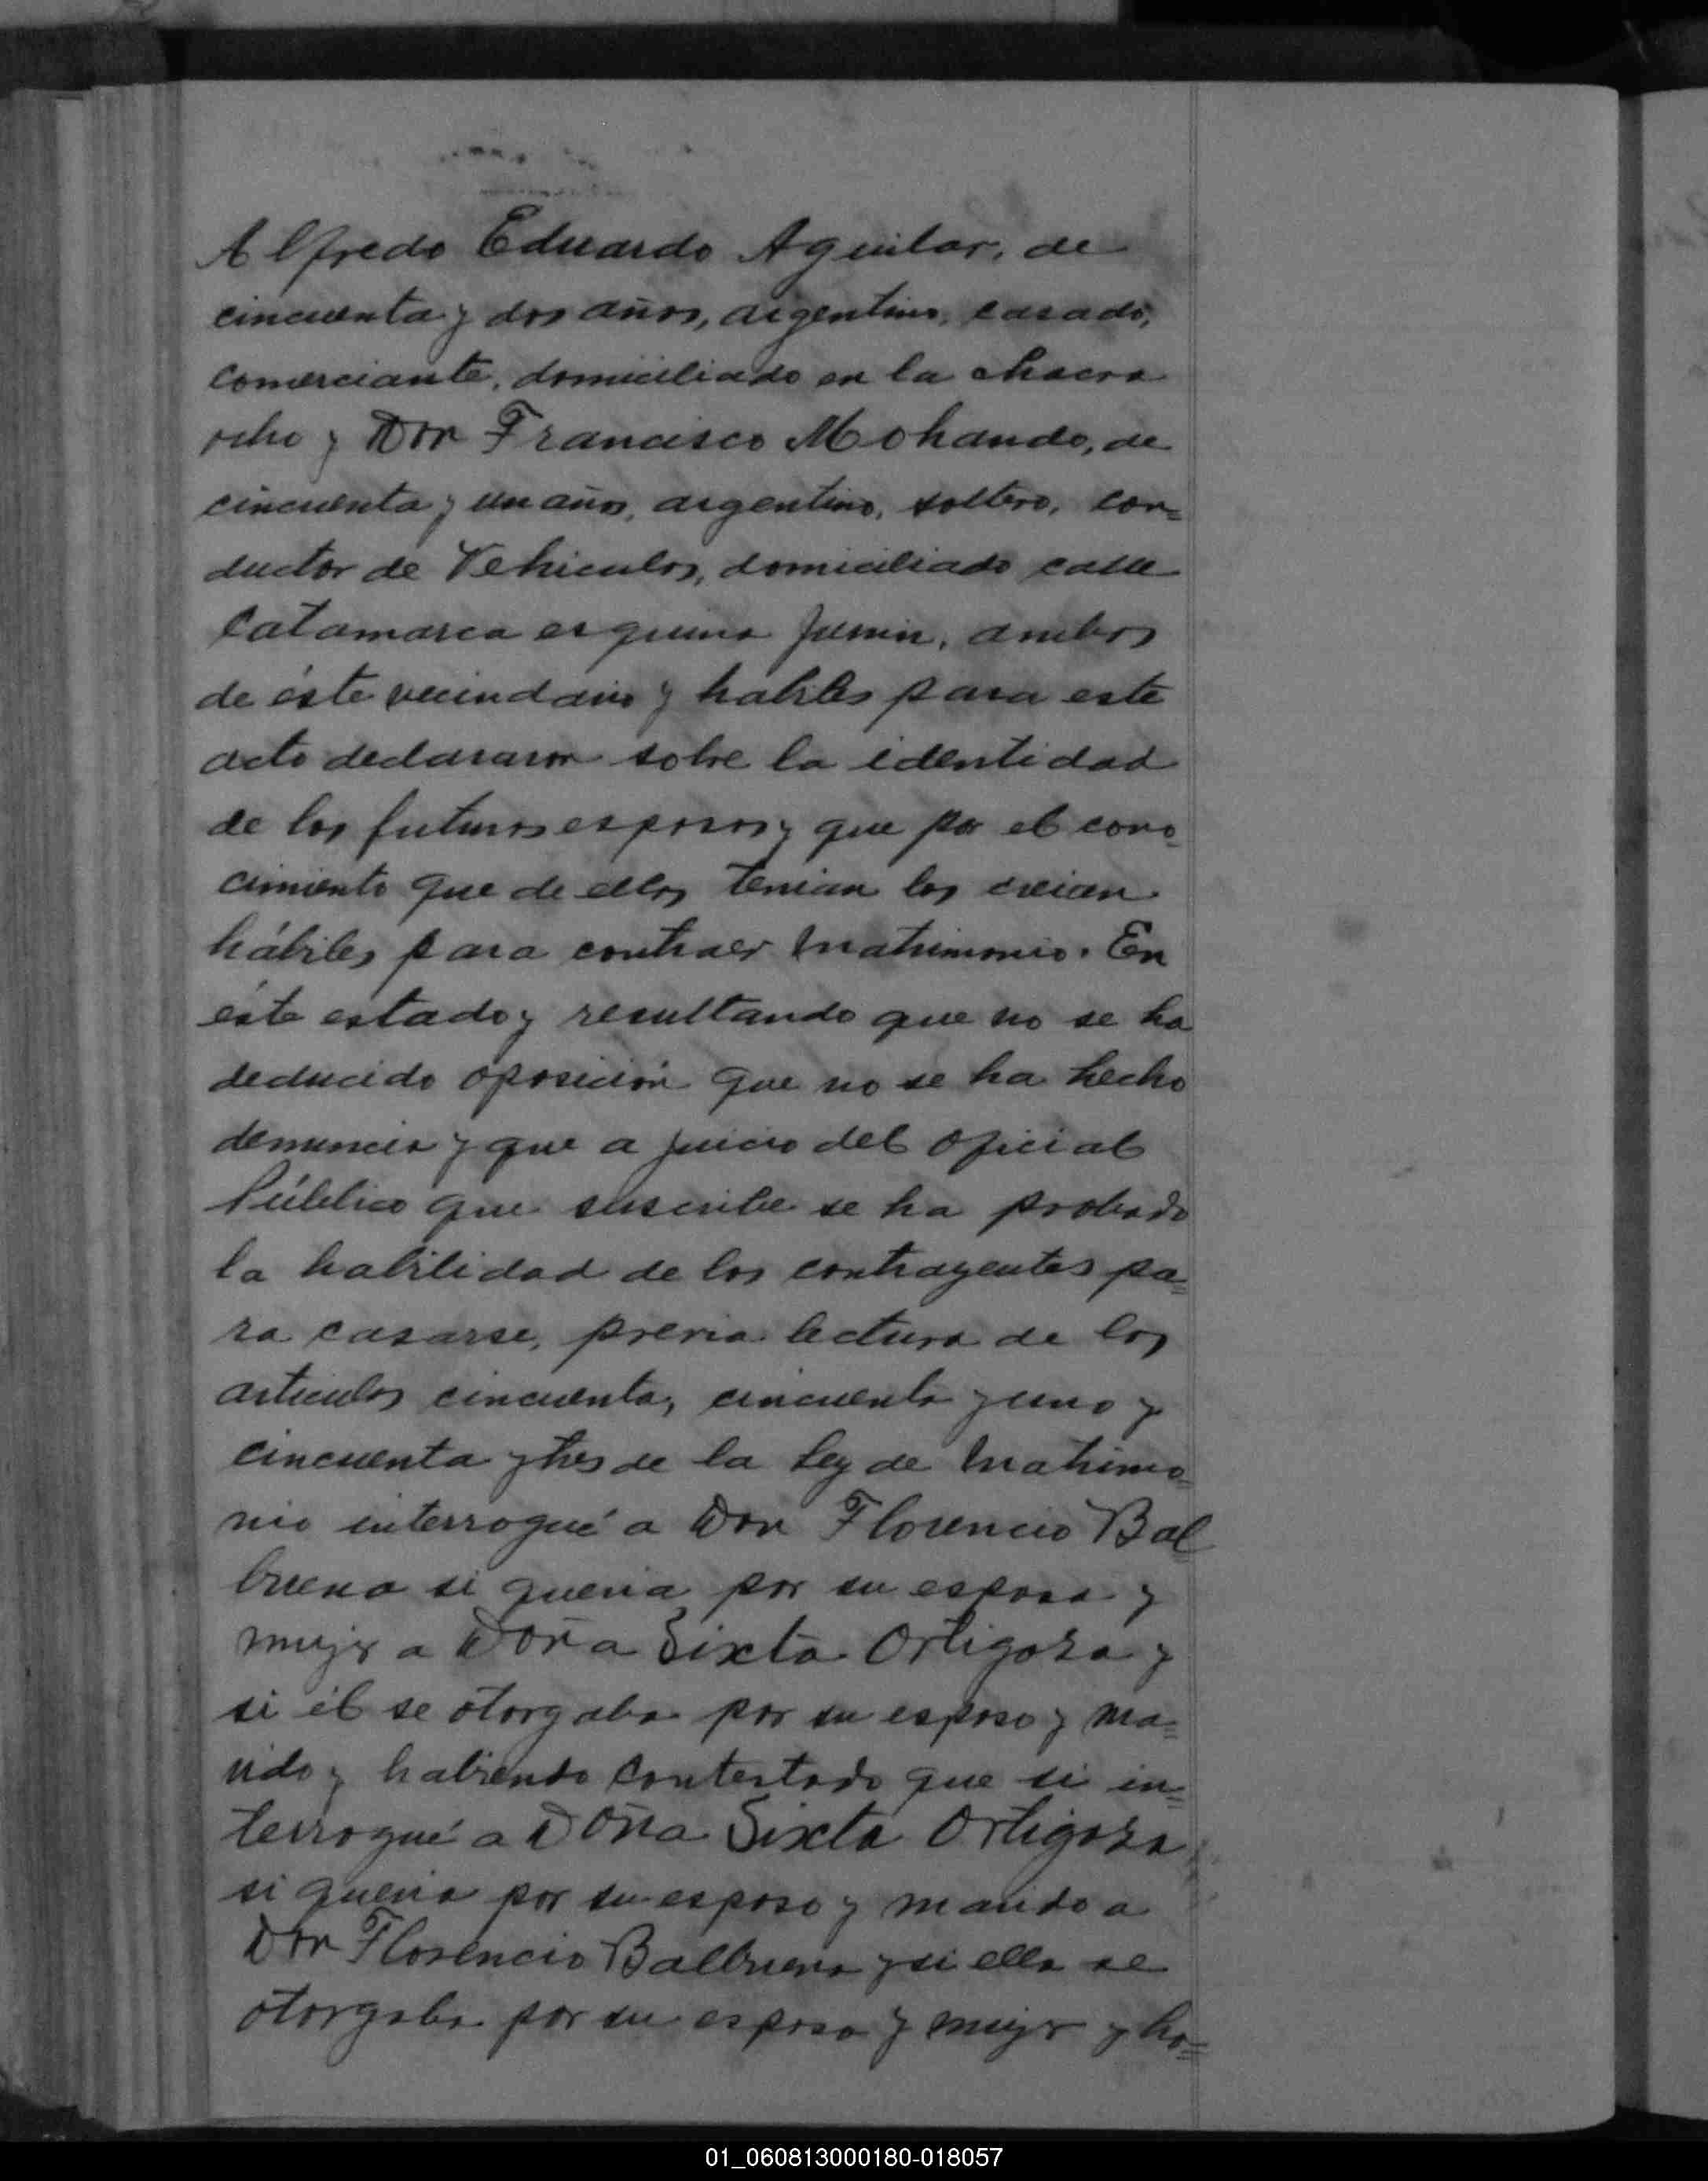 Alfredo Eduardo Aguilar, de
cincuenta y dos años, argentino, casado,
comerciante, domiciliado en la chacra
ocho y Don Francisco Mohando, de
cincuenta y un años, argentino, soltero, con=
ductor de Vehiculos, domiciliado calle
Catamarca esquina Junin, ambos
de éste vecindario y habiles para este
acto declararon sobre la identidad
de los futuros esposos y que por el cono=
cimiento que de ellos tenian los creian
hábiles para contraer Matrimonio. En
éste estado y resultando que no se ha
deducido oposición que no se ha hecho
denuncia y que a juicio del oficial
Público que suscribe se ha probado
la habilidad de los contrayentes pa=
ra casarse, previa lectura de los
articulos cincuenta, cincuenta y uno y
cincuenta y tres de la Ley de Matrimo=
nio interrogué a Don Florencio Bal=
buena si queria por su esposa y
mujer a Doña Sixta Ortigoza y
si él se otorgaba por su esposo y ma=
rido y habiendo contestado que si in=
terrogué a Doña Sixta Ortigoza
si queria por su esposo y marido a
Don Florencio Balbuena y si ella se
otorgaba por su esposa y mujer y ha=
01_060813000180-018057